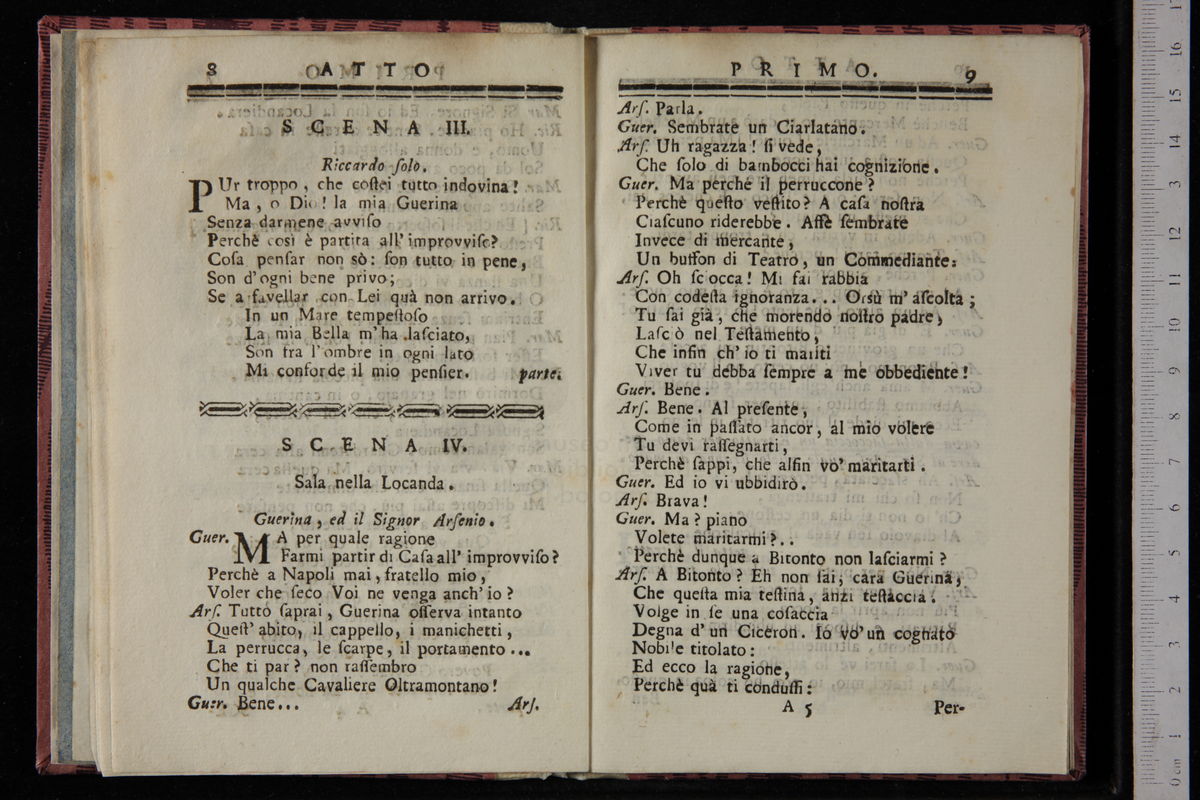 8 ATTO
SCENA III.
Riccardo solo.
PUr troppo, che costei tutto indovina!
Ma, o Dio! la mia Guerina
Senza darmene avviso
Perchè così è partita all'improvviso?
Cosa pensar non sò: son tutto in pene,
Son d'ogni bene privo;
Se a favellar con Lei quà non arrivo.
In un Mare tempestoso
La mia Bella m'ha lasciato,
Son fra l'ombre in ogni lato
Mi confonde il mio pensier. parte.
SCENA IV.
Sala nella Locanda.
Guerina, ed il Signor Arsenio.
Guer. MA per quale ragione
Farmi partir di Casa all' improvviso?
Perchè a Napoli mai, fratello mio,
Voler che seco Voi ne venga anch' io?
Ars. Tutto saprai, Guerina osserva intanto
Quest' abito, il cappello, i manichetti,
La perrucca, le scarpe, il portamento...
Che ti par? non rassembro
Un qualche Cavaliere Oltramontano!
Guer. Bene...
Ars.
PRIMO. 9
Ars. Parla.
Guer. Sembrate un Ciarlatano.
Ars. Uh ragazza! si vede,
Che solo di bambocci hai cognizione.
Guer. Ma perchè il perruccone?
Perchè questo vestito? A casa nostra
Ciascuno riderebbe. Affè sembrate
Invece di mercante,
Un buffon di Teatro, un Commediante:
Ars. Oh sciocca! Mi fai rabbia
Con codesta ignoranza... Orsù m' ascolta;
Tu sai già, che morendo nostro padre,
Lasciò nel Testamento,
Che infin ch' io ti mariti
Viver tu debba sempre a me obbediente!
Guer. Bene.
Ars. Bene. Al presente,
Come in passato ancor, al mio volere
Tu devi rassegnarti,
Perchè sappi, che alfin vo' maritarti.
Guer. Ed io vi ubbidirò.
Ars. Brava!
Guer. Ma? piano
Volete maritarmi?..
Perchè dunque a Bitonto non lasciarmi?
Ars. A Bitonto? Eh non sai, cara Guerina,
Che questa mia testina, anzi testaccia.
Volge in se una cosaccia
Degna d' un Ciceron. Io vo' un cognato
Nobile titolato:
Ed ecco la ragione,
Perchè quà ti condussi:
A 5 Per-